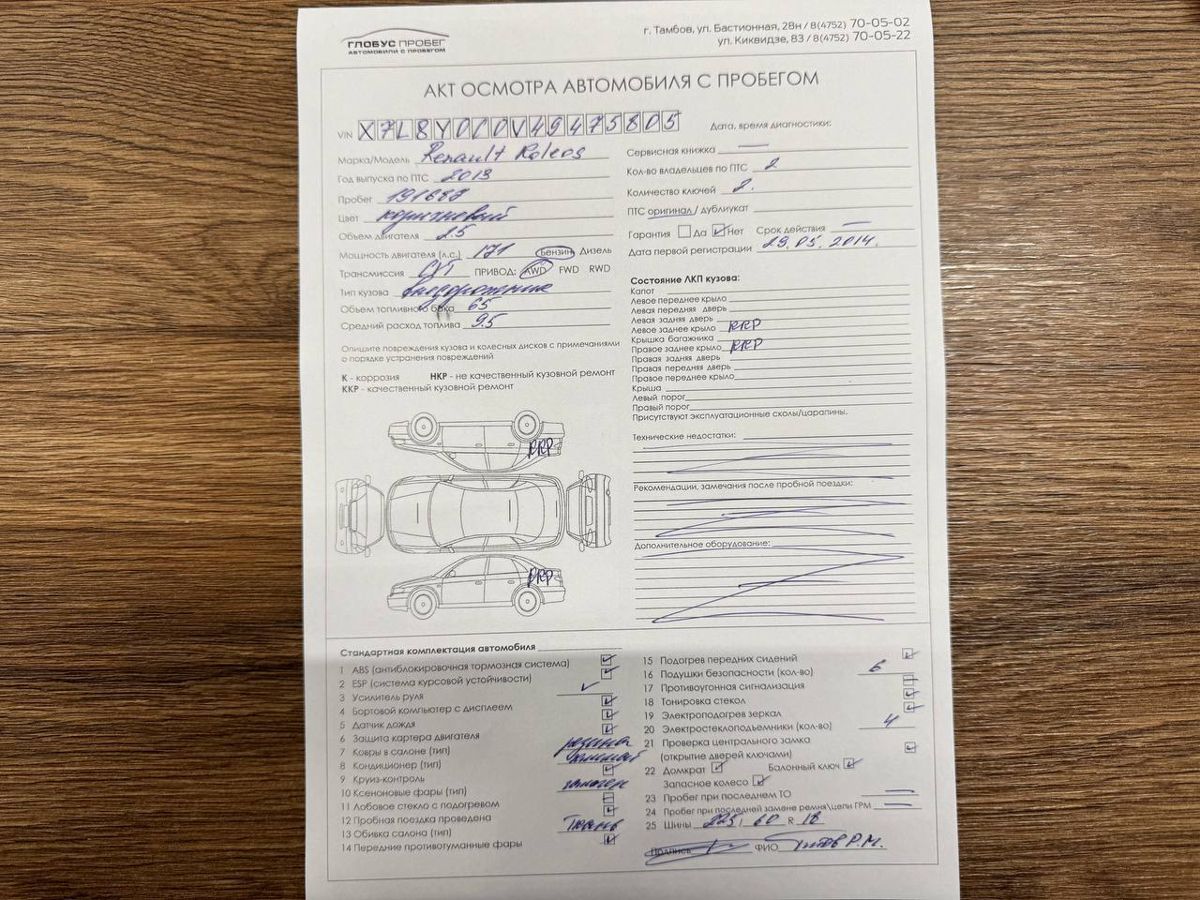 ГЛОБУС ПРОБЕГ
АВТОМОБИЛИ С ПРОБЕГОМ
г. Тамбов, ул. Бастионная, 28н / 8(4752) 70-05-02
ул. Киквидзе, 83 / 8(4752) 70-05-22
АКТ ОСМОТРА АВТОМОБИЛЯ С ПРОБЕГОМ
VIN X7L8Y0C0V49475805
Марка/Модель Renault Koleos
Год выпуска по ПТС 2013
Пробег 191687
Цвет коричневый
Объем двигателя 2.5
Мощность двигателя (л.с.) 171 Бензин Дизель
Трансмиссия CVT ПРИВОД: AWD FWD RWD
Тип кузова внедорожник
Объем топливного бака 65
Средний расход топлива 9.5
Опишите повреждения кузова и колесных дисков с примечаниями
о порядке устранения повреждений
К - коррозия НКР - не качественный кузовной ремонт
ККР - качественный кузовной ремонт
ККР
ККР
Дата, время диагностики:
Сервисная книжка —
Кол-во владельцев по ПТС 2
Количество ключей 2.
ПТС оригинал / дубликат
Гарантия Да Нет Срок действия —
Дата первой регистрации 29.05.2014.
Состояние ЛКП кузова:
Капот
Левое переднее крыло
Левая передняя дверь
Левая задняя дверь
Левое заднее крыло ККР
Крышка багажника
Правое заднее крыло ККР
Правая задняя дверь
Правая передняя дверь
Правое переднее крыло
Крыша
Левый порог
Правый порог
Присутствуют эксплуатационные сколы/царапины.
Технические недостатки:
Рекомендации, замечания после пробной поездки:
Дополнительное оборудование:
Стандартная комплектация автомобиля
1 ABS (антиблокировочная тормозная система)
2 ESP (система курсовой устойчивости)
3 Усилитель руля
4 Бортовой компьютер с дисплеем
5 Датчик дождя
6 Защита картера двигателя
7 Ковры в салоне (тип) резина
8 Кондиционер (тип)
9 Круиз-контроль
10 Ксеноновые фары (тип)
11 Лобовое стекло с подогревом
12 Пробная поездка проведена
13 Обивка салона (тип) Ткань
14 Передние противотуманные фары
15 Подогрев передних сидений
16 Подушки безопасности (кол-во) 6
17 Противоугонная сигнализация
18 Тонировка стекол
19 Электроподогрев зеркал
20 Электростеклоподъемники (кол-во) 4
21 Проверка центрального замка
(открытие дверей ключами)
22 Домкрат Балонный ключ
Запасное колесо
23 Пробег при последнем ТО —
24 Пробег при последней замене ремня\цепи ГРМ —
25 Шины 225 / 60 R 18
Подпись ФИО Титов Р.М.